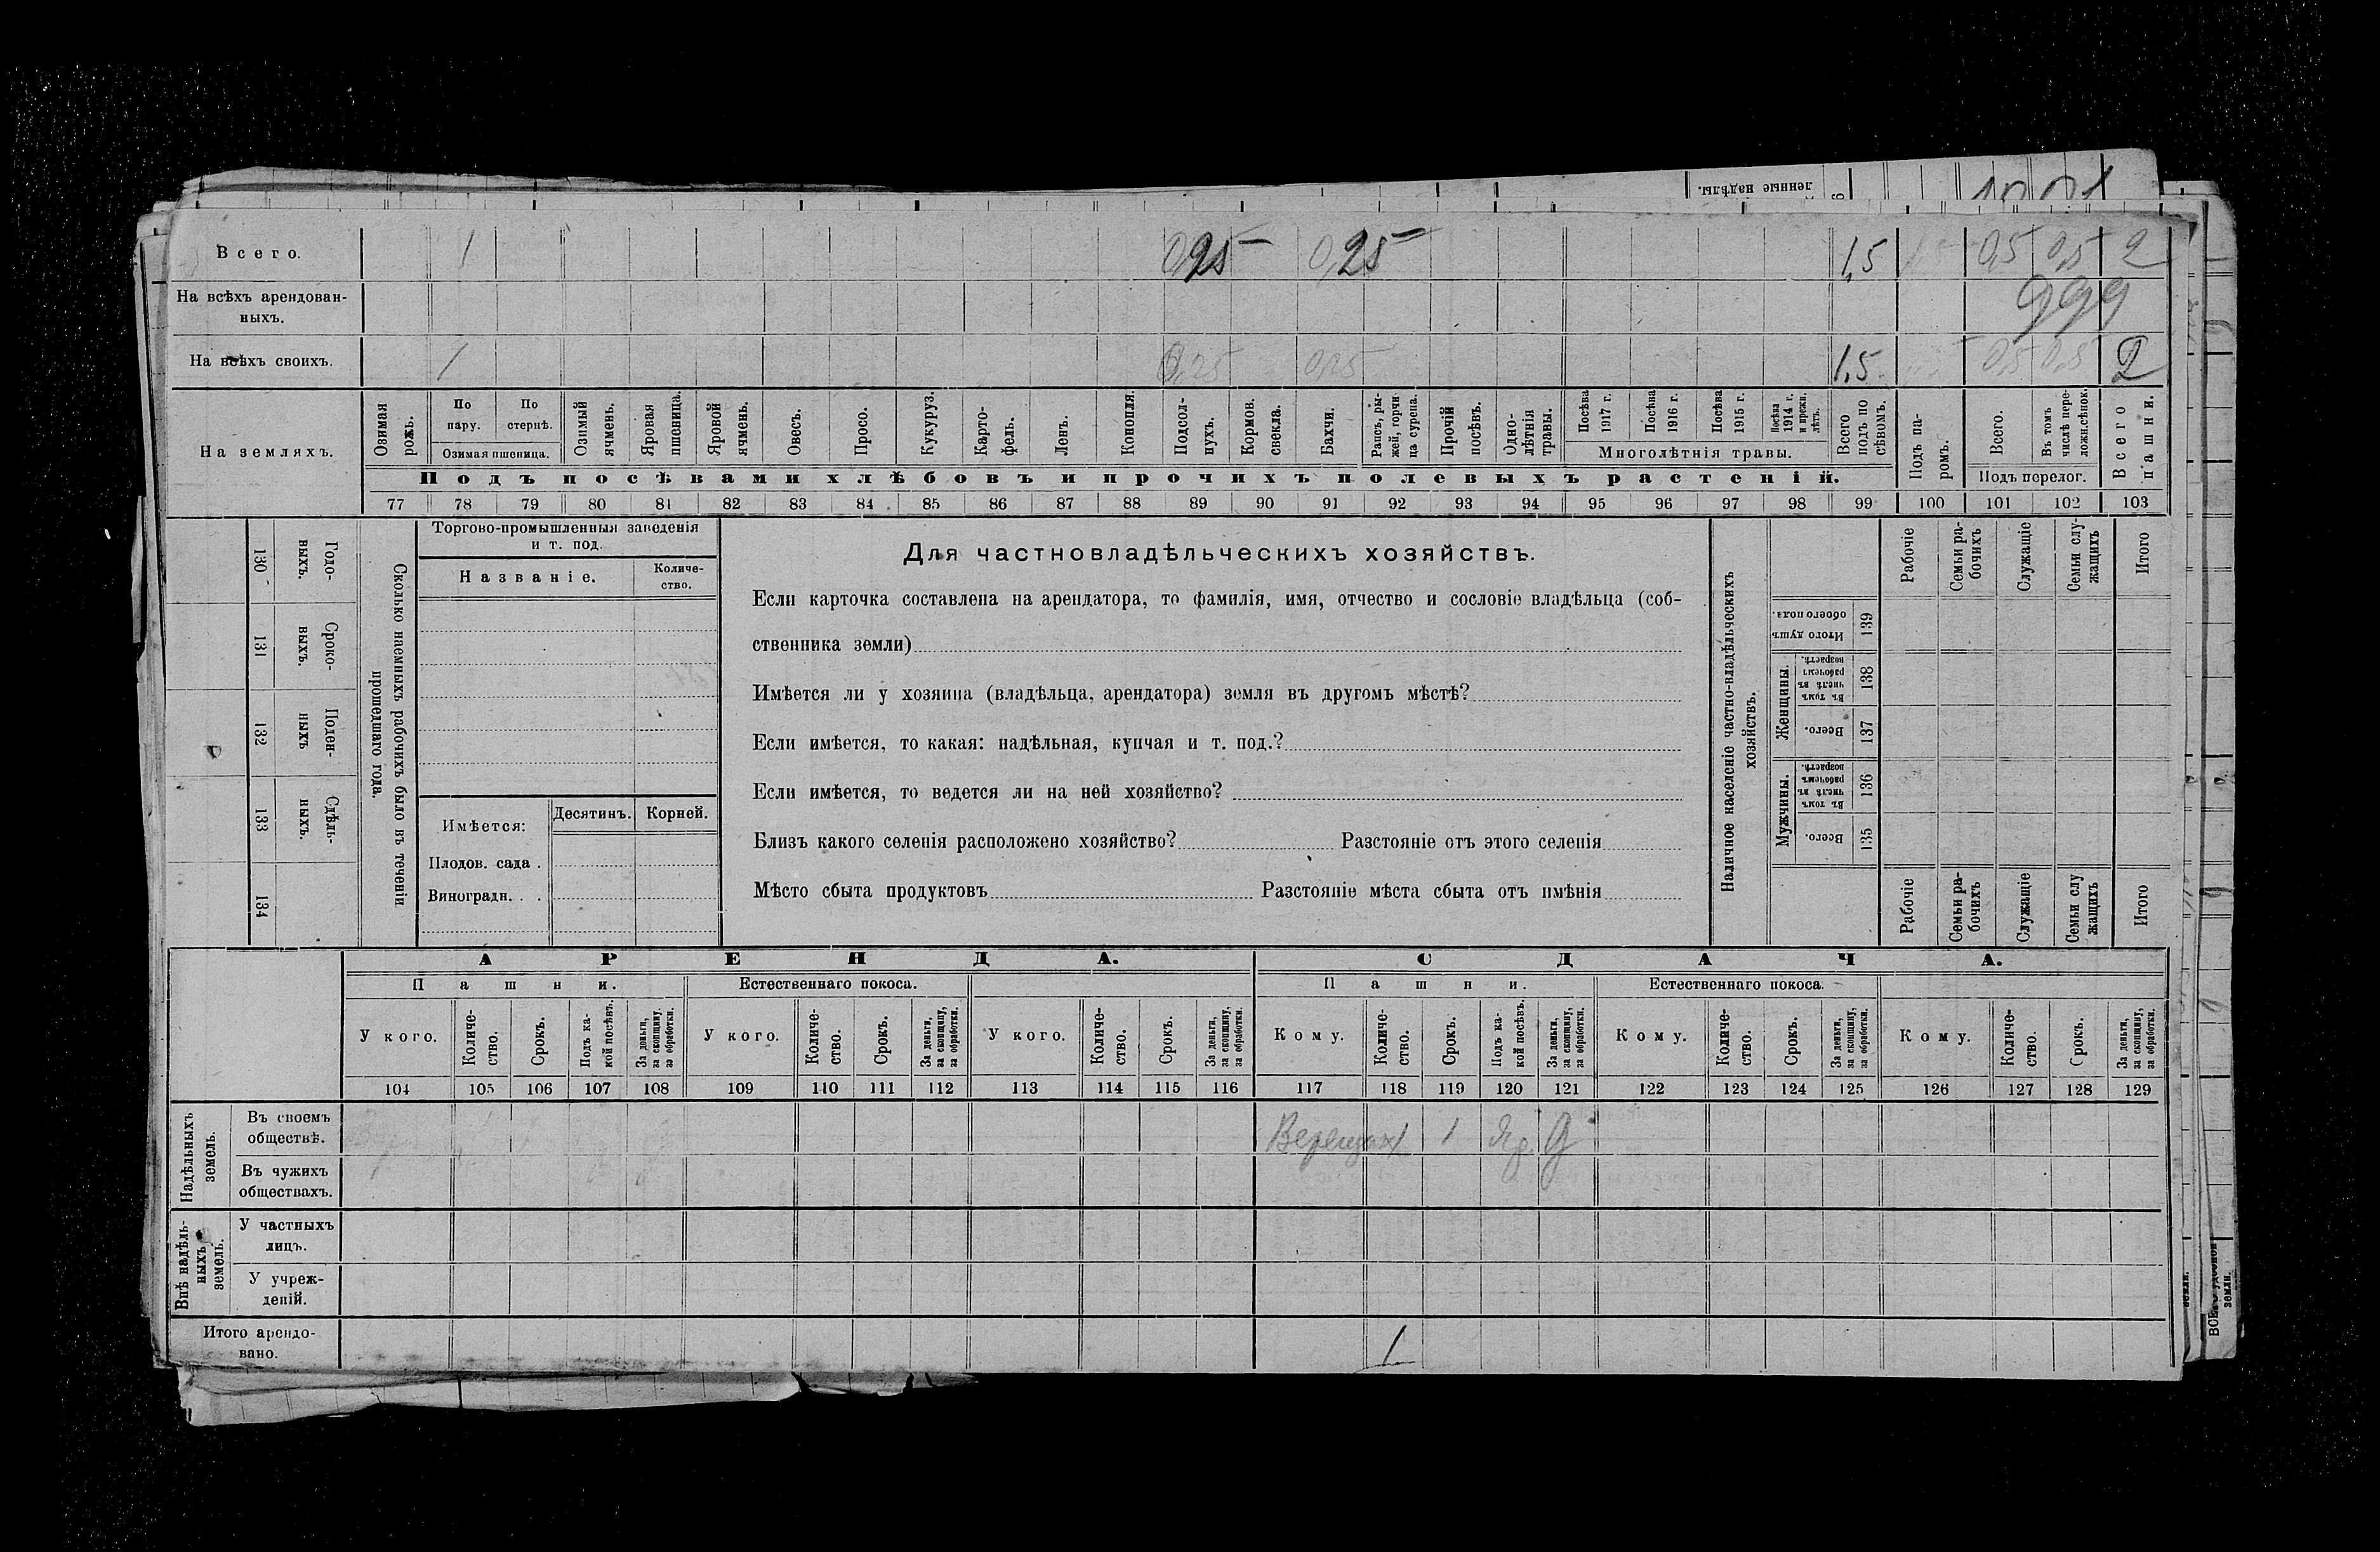 ленные надѣлы.
Всего. 1 0,25 0,25 1,5 0,5 0,5 2
На всѣхъ арендован-
ныхъ. 999
На всѣхъ своихъ. 1 0,25 0,25 1,5 0,5 0,5 2
На земляхъ.
Озимая рожь.
По пару.
По стернѣ.
Озимая пшеница.
Озимый ячмень.
Яровая пшеница.
Яровой ячмень.
Овесъ.
Просо.
Кукуруз.
Карто-
фель.
Ленъ.
Конопля.
Подсол-
нухъ.
Кормов. свекла.
Бахчи.
Рапсъ, ры-
жей, горчи-
ца сурепа.
Прочій посѣвъ.
Одно-
лѣтнія травы.
Посѣва 1917 г.
Посѣва 1916 г.
Посѣва 1915 г.
Посѣва 1914 г. и прежн. лѣтъ.
Многолѣтнія травы.
Всего подъ по
сѣвомъ.
Подъ па-
ромъ.
Всего.
Въ томъ числѣ пере-
ложн.сѣнок.
Подъ перелог.
Всего пашни.
Подъ посѣвами хлѣбовъ и прочихъ полевыхъ растеній.
77 78 79 80 81 82 83 84 85 86 87 88 89 90 91 92 93 94 95 96 97 98 99 100 101 102 103
Сколько наемныхъ рабочихъ было въ теченіи
прошедшаго года.
Годо-
выхъ.
130
Сроко-
выхъ.
131
Поден-
ныхъ
132
Сдѣль-
ныхъ.
133
134
Торгово-промышленныя заведенія
и т. под.
Названіе.
Количе-
ство.
Имѣется:
Десятинъ. Корней.
Плодов. сада .
Виноградн. . .
Для частновладѣльческихъ хозяйствъ.
Если карточка составлена на арендатора, то фамилія, имя, отчество и сословіе владѣльца (соб-
ственника земли)
Имѣется ли у хозяина (владѣльца, арендатора) земля въ другомъ мѣстѣ?
Если имѣется, то какая: надѣльная, купчая и т. под.?
Если имѣется, то ведется ли на ней хозяйство?
Близъ какого селенія расположено хозяйство? Разстояніе отъ этого селенія
Мѣсто сбыта продуктовъ Разстояніе мѣста сбыта отъ имѣнія
Наличное населеніе частно-владѣльческихъ
хозяйствъ.
Итого душъ
обоего пола.
139
Женщины.
Въ томъ числѣ въ рабочемъ возрастѣ.
138
Всего.
137
Мужчины.
Въ томъ числѣ въ рабочемъ возрастѣ.
136
Всего.
135
Рабочіе
Семьи ра-
бочихъ
Служащіе
Семьи слу-
жащихъ
Итого
Рабочіе
Семьи ра-
бочихъ
Служащіе
Семьи слу
жащихъ
Итого
АРЕНДА. СДАЧА.
Пашни. Естественнаго покоса. Пашни. Естественнаго покоса.
У кого.
Количе-
ство.
Срокъ.
Подъ ка-
кой посѣвъ.
За деньги,
за скопщину,
за обработки.
У кого.
Количе-
ство.
Срокъ.
За деньги,
за скопщину,
за обработки.
У кого.
Количе-
ство.
Срокъ.
За деньги,
за скопщину,
за обработки.
Кому.
Количе-
ство.
Срокъ.
Подъ ка-
кой посѣвъ.
За деньги,
за скопщину,
за обработки.
Кому.
Количе-
ство.
Срокъ.
За деньги,
за скопщину,
за обработки.
Кому.
Количе-
ство.
Срокъ.
За деньги,
за скопщину,
за обработки.
104 105 106 107 108 109 110 111 112 113 114 115 116 117 118 119 120 121 122 123 124 125 126 127 128 129
Надѣльныхъ
земель.
Въ своемъ
обществѣ. 1 1 Яр. Д
Въ чужихъ
обществахъ.
Внѣ надѣль-
ныхъ
земель.
У частныхъ
лицъ.
У учреж-
деній.
Итого арендо-
вано. 1
земли.